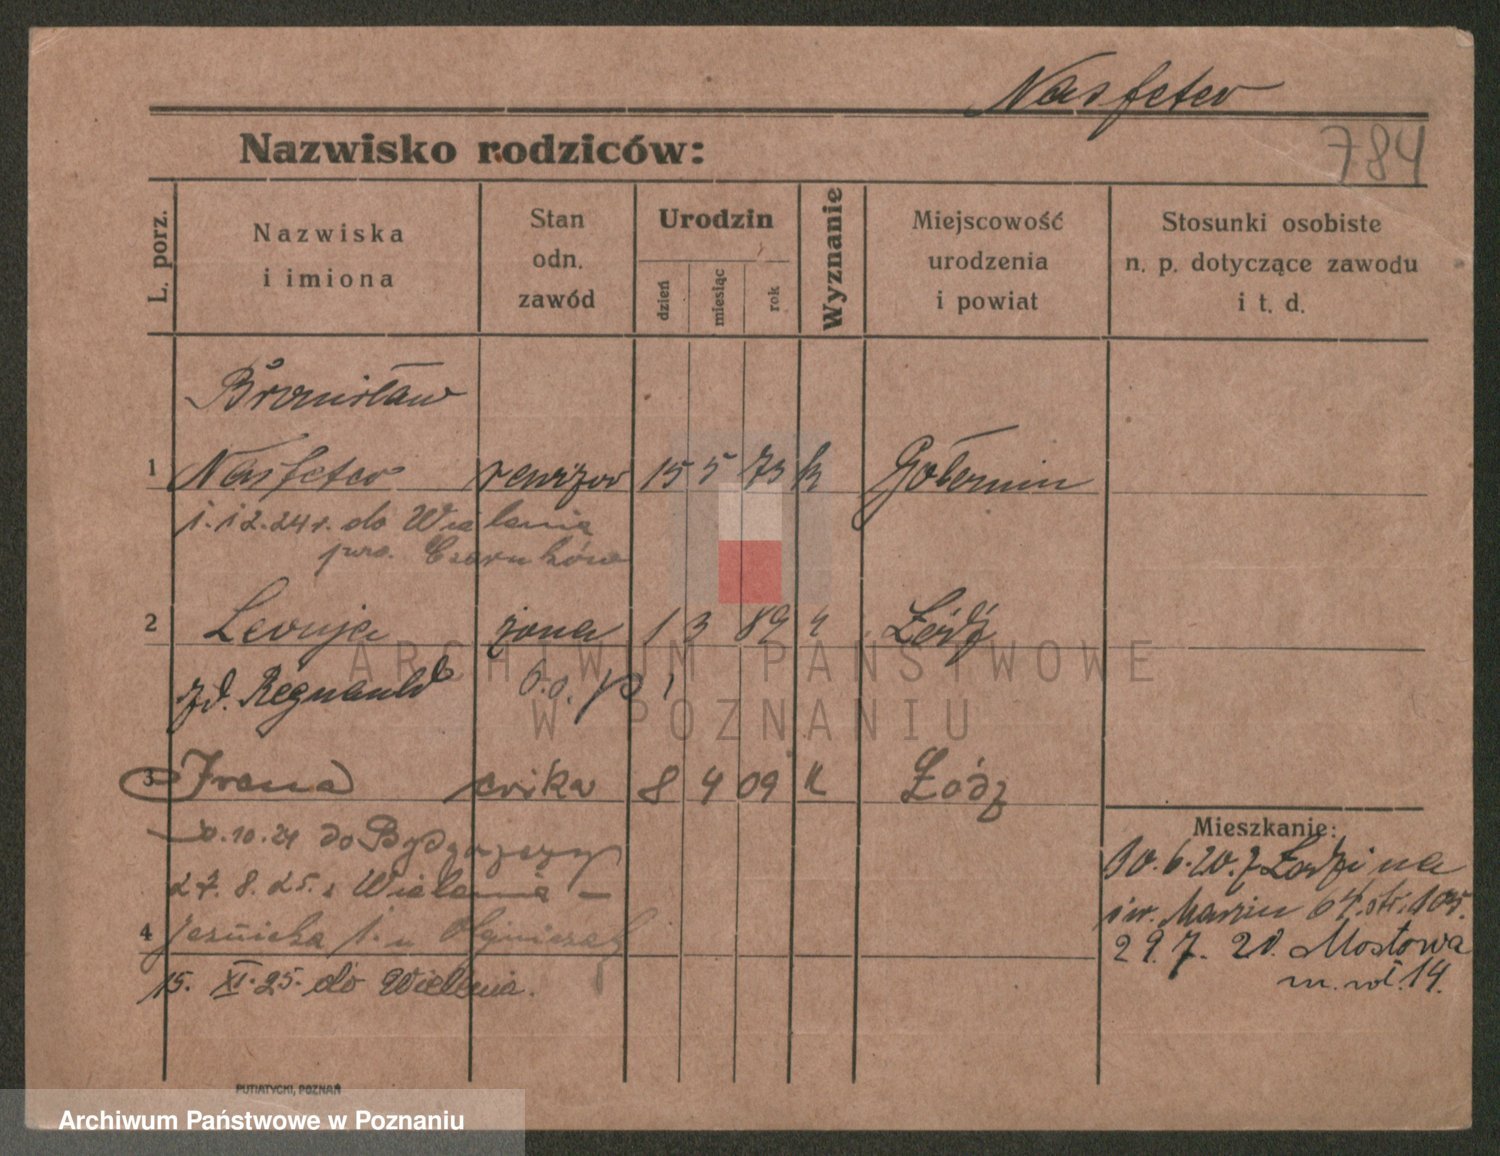 Nasfeter
784
Nazwisko rodziców:
L. porz.
Nazwiska
i imiona
Stan
odn.
zawód
Urodzin
dzień
miesiąc
rok
Wyznanie
Miejscowość
urodzenia
i powiat
Stosunki osobiste
n. p. dotyczące zawodu
i t. d.
Bronisław
1 Nasfeter rewizor 15 5 73 k
1.12.24 r. do Wielenia
pow. Czarnków
2 żona 1 3 89 Łódź
zd. Regnauld
3 Irena córka 8 4 09 k Łódź
10.24 do Bydgoszczy
27.8.25. z Wielenia
4
15. XI. 25. do Wielenia.
Mieszkanie:
30.6.20. z Łodzi na
św. Marcin 67.
29.7. 20. Mostowa
14.
PUTIATYCKI, POZNAŃ
ARCHIWUM PAŃSTWOWE
W POZNANIU
Archiwum Państwowe w Poznaniu